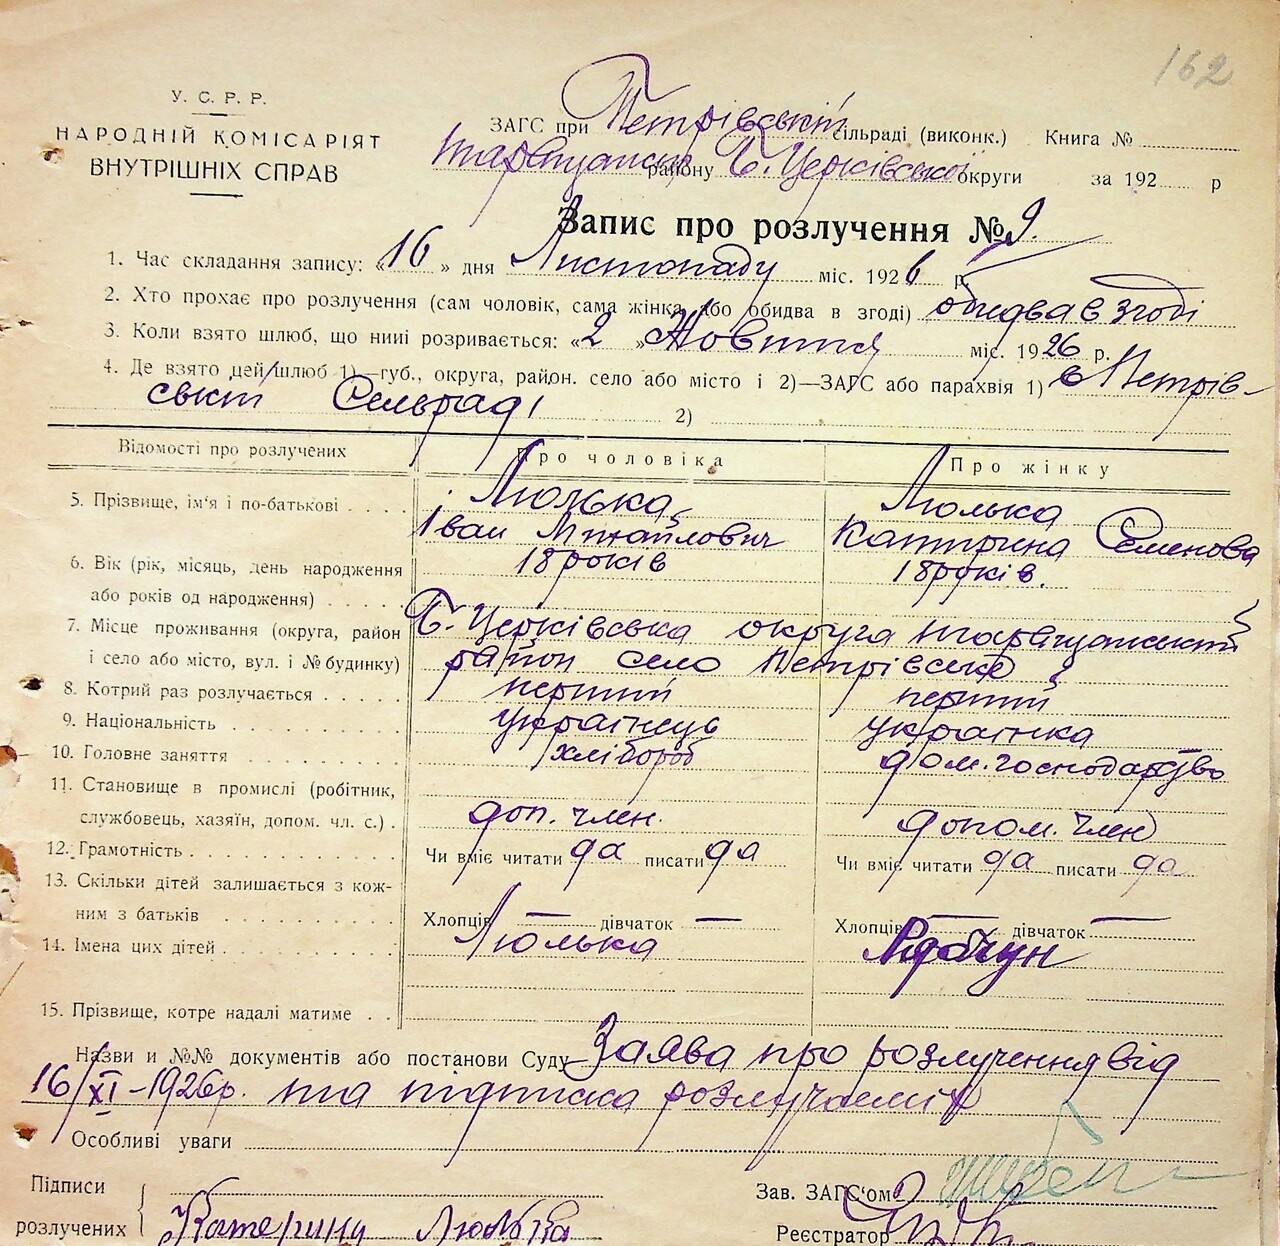 162
У. С. Р. Р.
НАРОДНІЙ КОМІСАРІЯТ
ВНУТРІШНІХ СПРАВ
ЗАГС при Петрівській сільраді (виконк.) Книга №
Таращанськ району Б. Церківської округи за 192 р
Запис про розлучення № 9.
1. Час складання запису: «16» дня Листопаду міс. 1926 р.
2. Хто прохає про розлучення (сам чоловік, сама жінка, або обидва в згоді) обидва в згоді
3. Коли взято шлюб, що нині розривається: «2 » Жовтня міс. 1926 р.
4. Де взято цей шлюб 1)—губ., округа, район. село або місто і 2)—ЗАГС або парахвія 1) в Петрів-
ській Сельраді 2)
Відомості про розлучених Про чоловіка Про жінку
5. Прізвище, ім'я і по-батькові Люлька Люлька
Іван Михайлович Катирина Семенова
6. Вік (рік, місяць, день народження 18 років 18 років.
або років од народження)
7. Місце проживання (округа, район Б. Церківська округа Таращанський
і село або місто, вул. і № будинку) район село Петрівське
8. Котрий раз розлучається перший перший
9. Національність українець українка
10. Головне заняття хлібороб дом. господарство
11. Становище в промислі (робітник,
службовець, хазяїн, допом. чл. с.) доп. член. допом. член
12. Грамотність Чи вміє читати да писати да Чи вміє читати да писати да
13. Скільки дітей залишається з кож-
ним з батьків Хлопців — дівчаток — Хлопців — дівчаток —
14. Імена цих дітей Люлька
15. Прізвище, котре надалі матиме
Назви и №№ документів або постанови Суду Заява про розлучення від
16/XI–1926 р. та підписка розлучаемих
Особливі уваги
Підписи Зав. ЗАГС'ом
розлучених Катерину Реєстратор